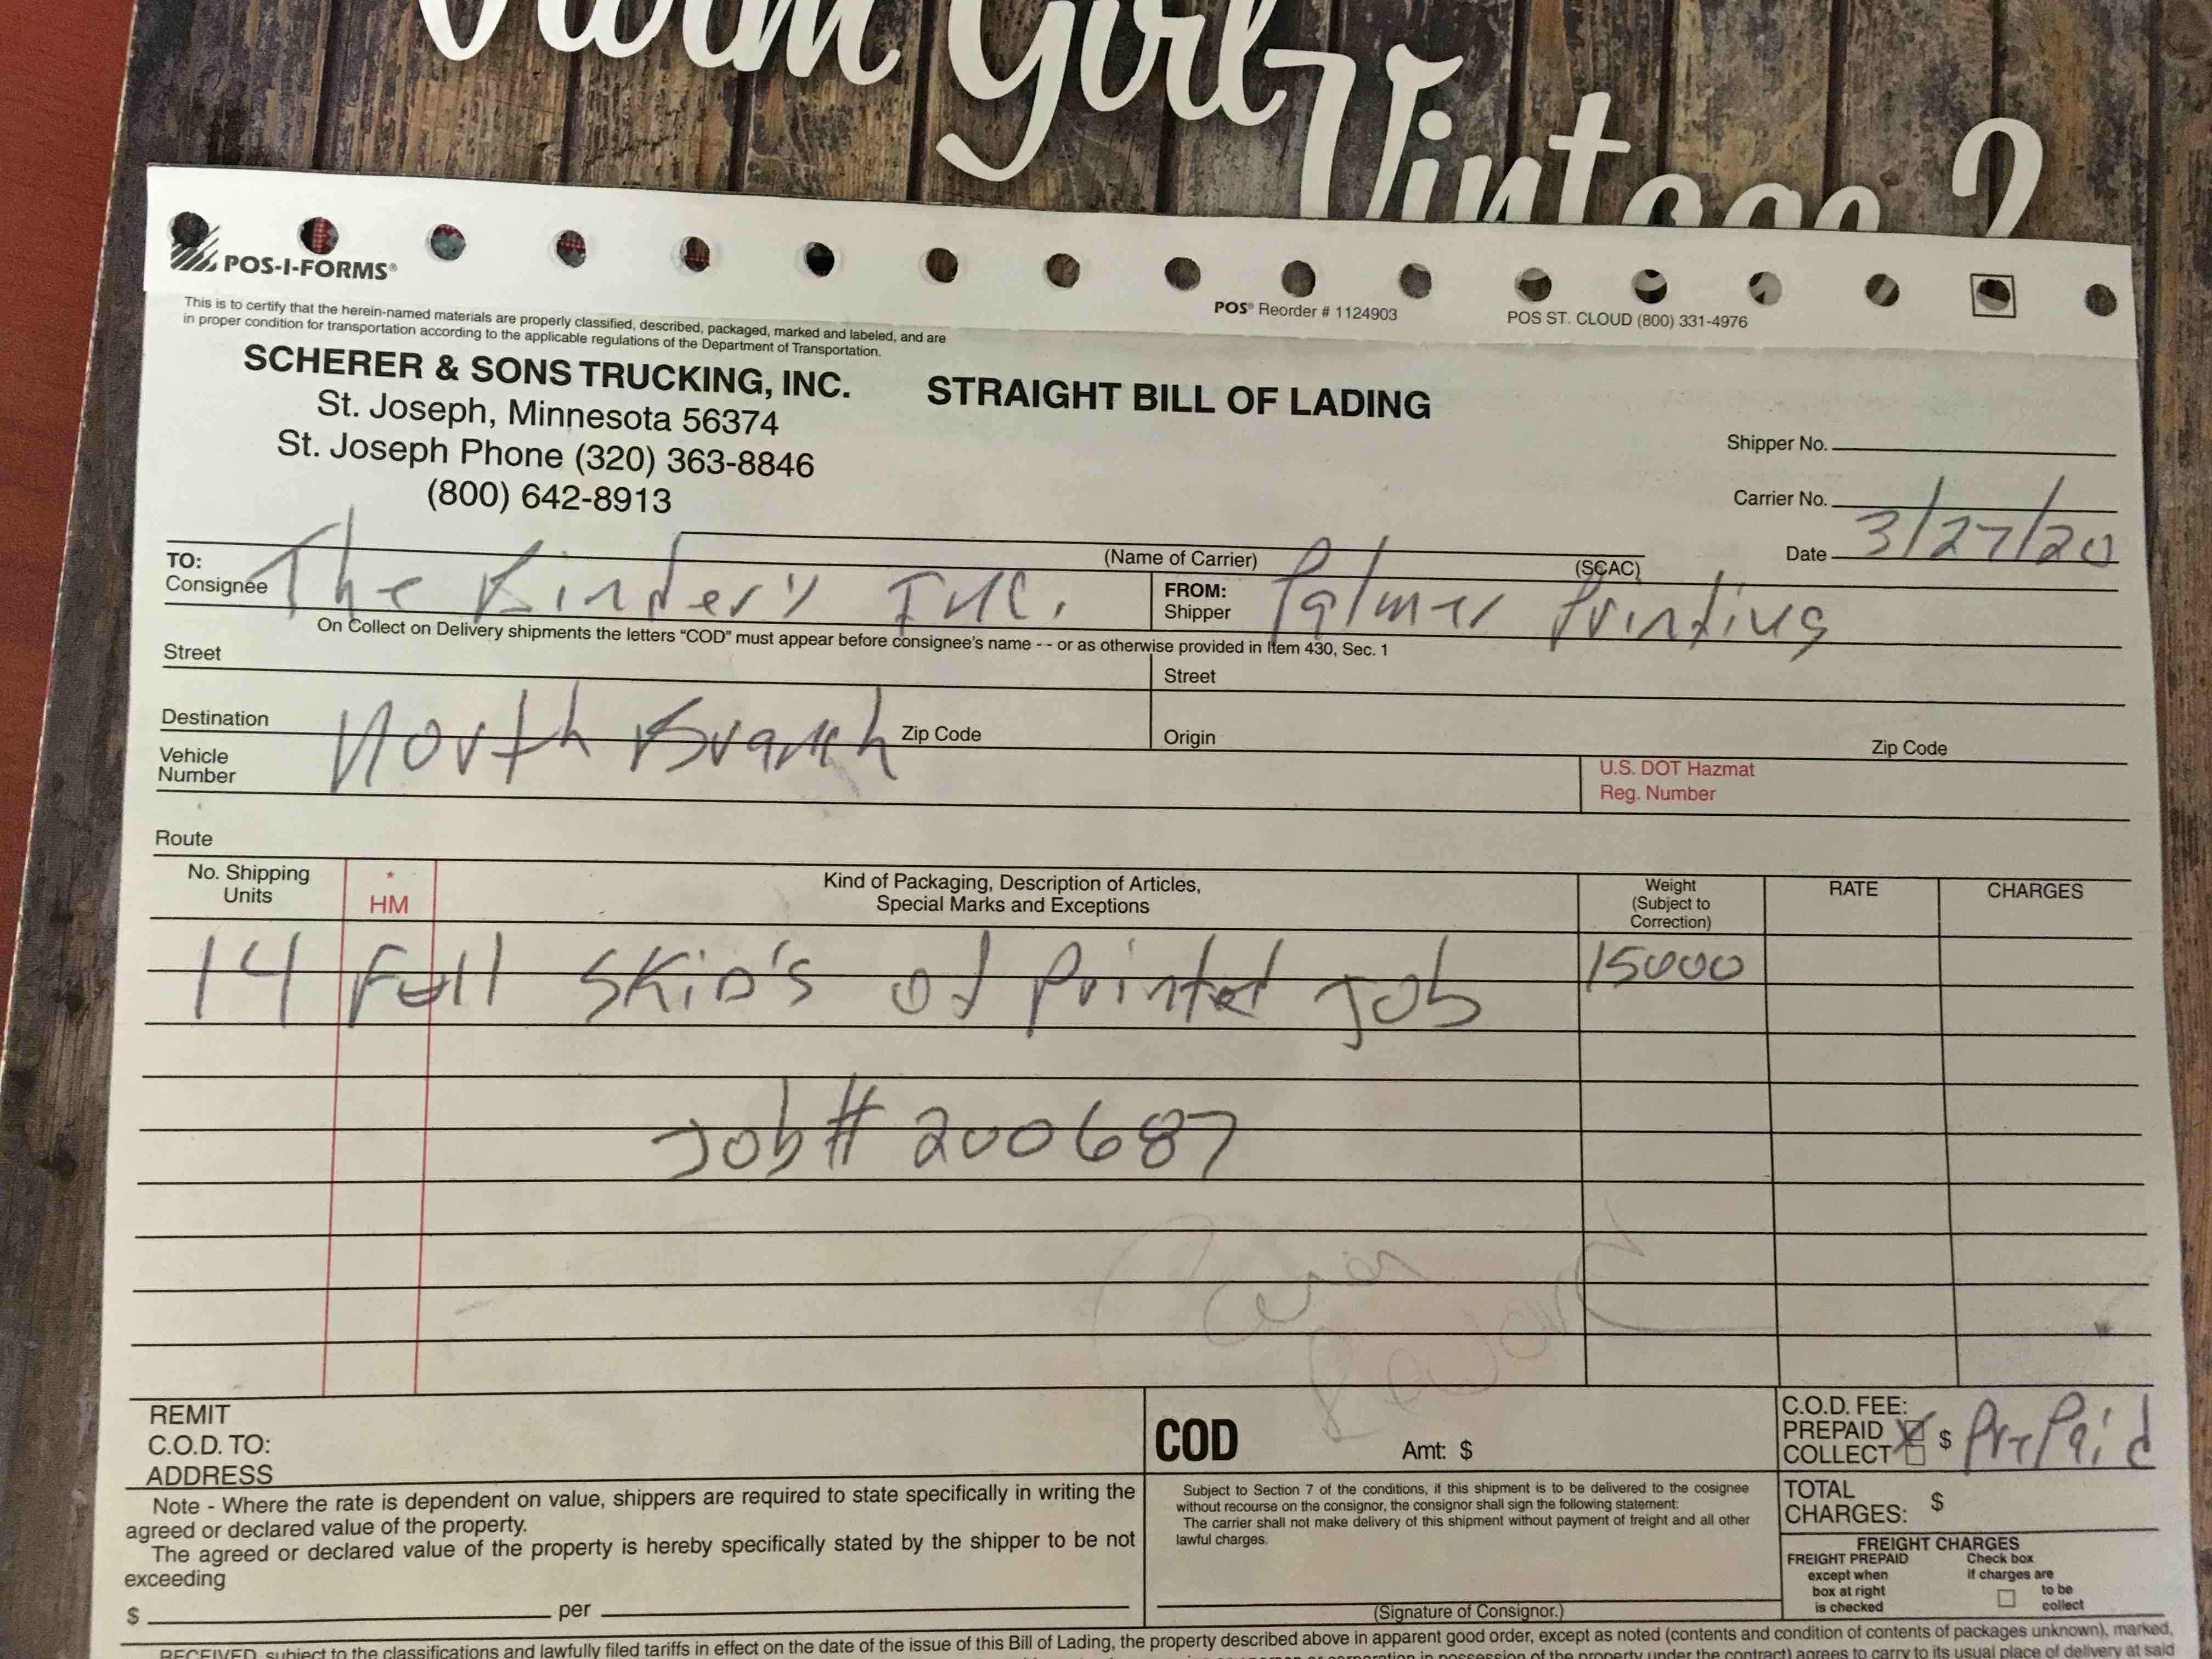 Farm Girl
Vintage 2
POS-I-FORMS®
POS® Reorder # 1124903
POS ST. CLOUD (800) 331-4976
This is to certify that the herein-named materials are properly classified, described, packaged, marked and labeled, and are
in proper condition for transportation according to the applicable regulations of the Department of Transportation.
SCHERER & SONS TRUCKING, INC.
St. Joseph, Minnesota 56374
St. Joseph Phone (320) 363-8846
(800) 642-8913
STRAIGHT BILL OF LADING
Shipper No.
Carrier No.
Date 3/27/20
(Name of Carrier) (SCAC)
TO:
Consignee The Kinder's Inc.
FROM:
Shipper Palmer Printing
On Collect on Delivery shipments the letters “COD” must appear before consignee's name - - or as otherwise provided in Item 430, Sec. 1
Street
Street
Destination North Branch Zip Code
Origin Zip Code
Vehicle
Number
U.S. DOT Hazmat
Reg. Number
Route
No. Shipping
Units
*
HM
Kind of Packaging, Description of Articles,
Special Marks and Exceptions
Weight
(Subject to
Correction)
RATE
CHARGES
14 Full SKiD's of Printed Job 15000
Job # 200687
REMIT
C.O.D. TO:
ADDRESS
COD
Amt: $
C.O.D. FEE:
PREPAID X
COLLECT
$ PrePaid
Note - Where the rate is dependent on value, shippers are required to state specifically in writing the
agreed or declared value of the property.
The agreed or declared value of the property is hereby specifically stated by the shipper to be not
exceeding
$ per
Subject to Section 7 of the conditions, if this shipment is to be delivered to the cosignee
without recourse on the consignor, the consignor shall sign the following statement:
The carrier shall not make delivery of this shipment without payment of freight and all other
lawful charges.
(Signature of Consignor.)
TOTAL
CHARGES: $
FREIGHT CHARGES
FREIGHT PREPAID
except when
box at right
is checked
Check box
if charges are
to be
collect
RECEIVED, subject to the classifications and lawfully filed tariffs in effect on the date of the issue of this Bill of Lading, the property described above in apparent good order, except as noted (contents and condition of contents of packages unknown), marked,
in possession of the property under the contract) agrees to carry to its usual place of delivery at said